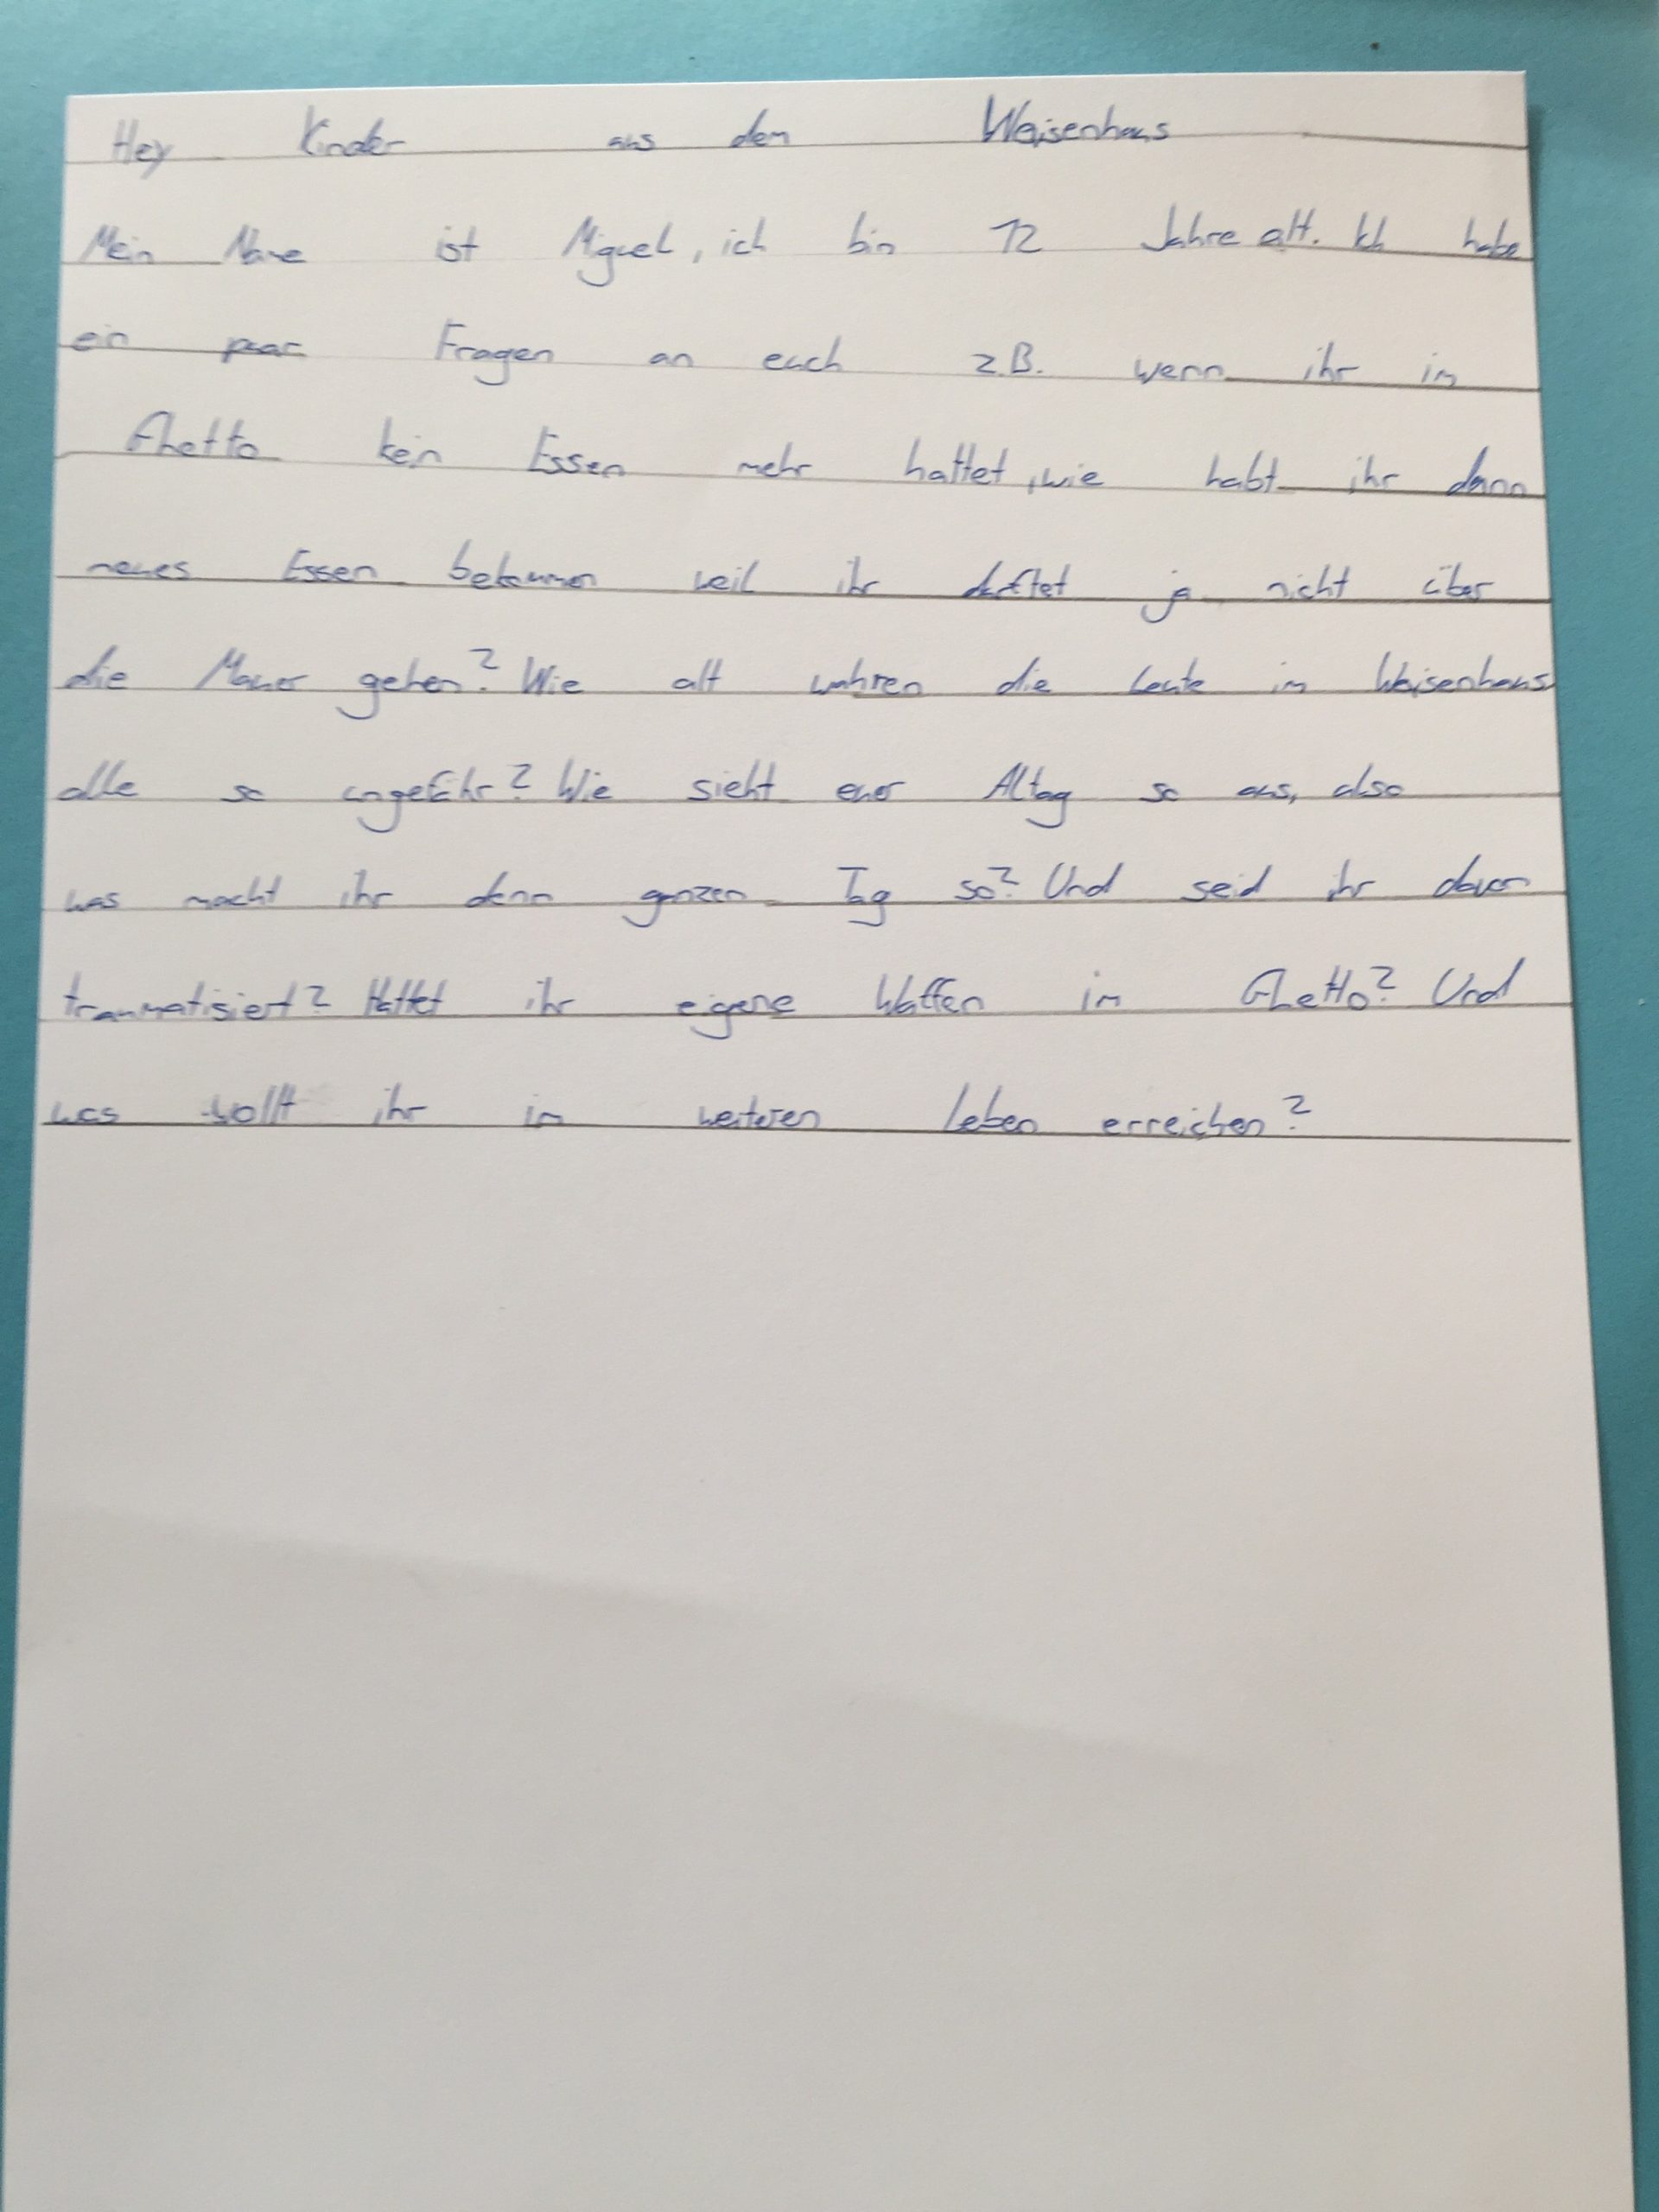 Hey Kinder aus dem Weisenhaus
Mein Name ist Miguel, ich bin 12 Jahre alt. Ich habe
ein paar Fragen an euch z.B. wenn ihr im
Ghetto kein Essen mehr hattet, wie habt ihr dann
neues Essen bekommen weil ihr durftet ja nicht über
die Mauer gehen? Wie alt wahren die Leute im Weisenhaus
alle so ungefähr? Wie sieht euer Altag so aus, also
was macht ihr denn ganzen Tag so? Und seid ihr davon
traumatisiert? Hattet ihr eigene Waffen im Ghetto? Und
was wollt ihr im weiteren Leben erreichen?